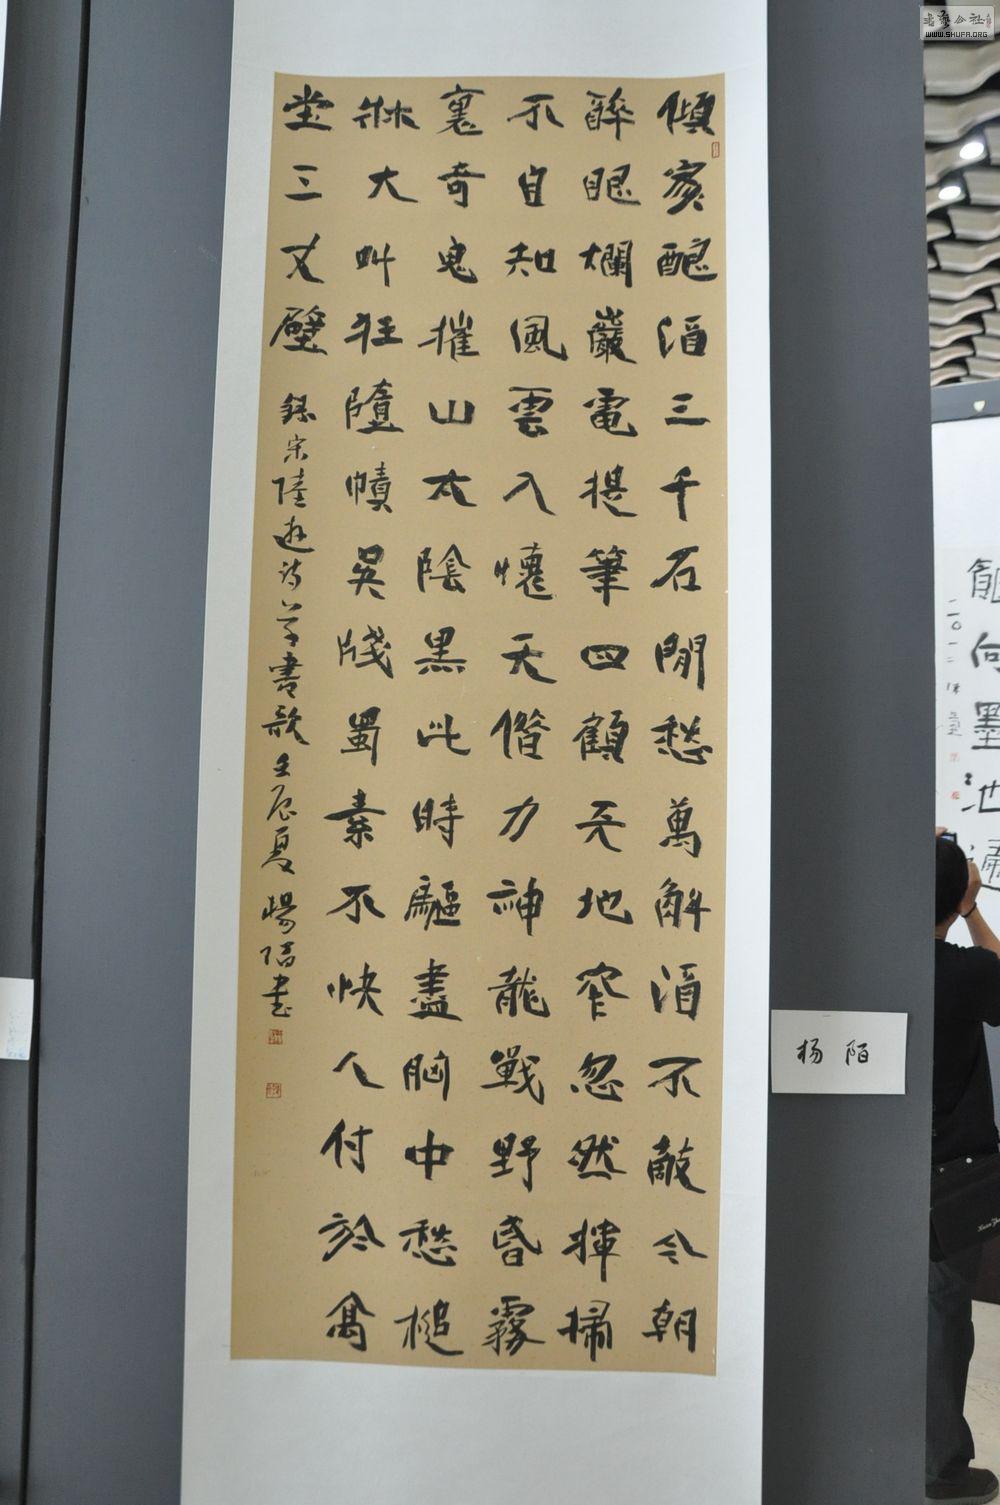 傾家酿酒三千石閒愁萬斛酒不敵今朝
醉眼爛巖電提筆四顧天地窄忽然揮掃
不自知風雲入懷天借力神龍戰野昏霧
裏奇鬼摧山太陰黑此時驅盡胸中愁槌
牀大叫狂墮幘吳牋蜀素不快人付於高
堂三丈壁
錄宋陸遊詩草書歌壬辰夏楊陌書
杨陌
向墨池
二〇一二
書藝公社
WWW.SHUFA.ORG